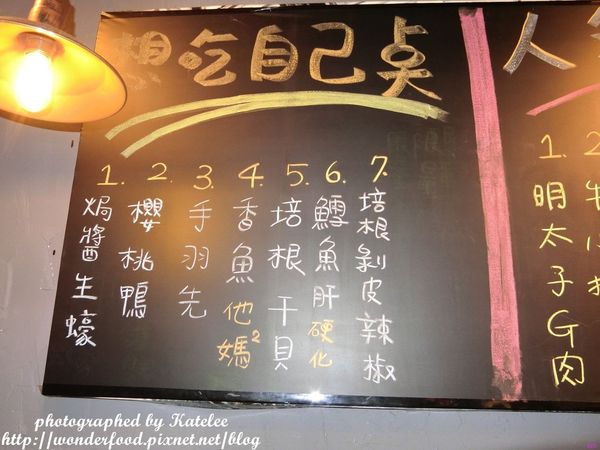 想吃自己点
1. 焗醬生蠔
2. 櫻桃鴨
3. 手羽先
4. 香魚他媽²
5. 培根干貝
6. 鱈魚肝硬化
7. 培根剝皮辣椒
人
1. 明太子G肉
2
photographed by Katelee
http://wonderfood.pixnet.net/blog